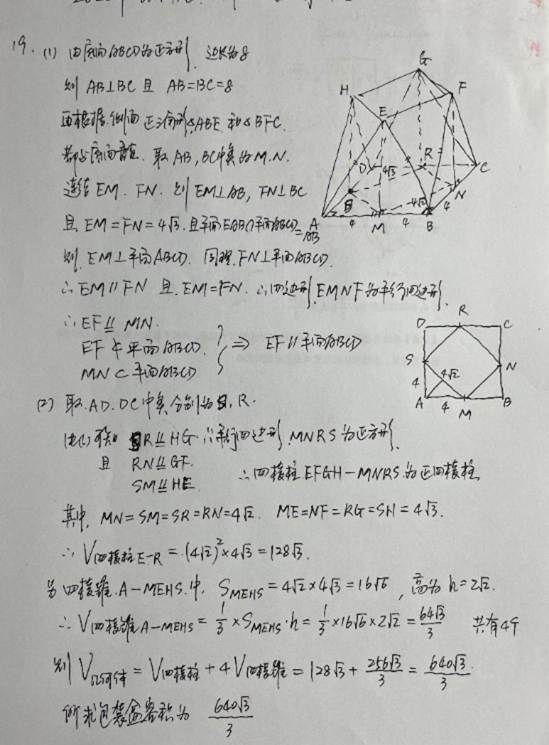 19. (1) 由底面ABCD为正方形, 边长为8
则 AB⊥BC 且 AB=BC=8
又根据侧面正三角形△ABE 和△BFC.
都与底面垂直. 取AB, BC中点为M.N.
连结EM. FN. 则EM⊥AB, FN⊥BC
且EM=FN=4√3. 且平面EAB∩平面ABCD=AB
则. EM⊥平面ABCD. 同理. FN⊥平面ABCD.
∴EM∥FN 且 EM=FN. ∴四边形EMNF为平行四边形.
∴EF∥MN.
EF⊄平面ABCD.
MN⊂平面ABCD
⇒ EF∥平面ABCD
(2) 取AD.DC中点分别为S,R.
由(1)可知 SR∥HG ∴四边形MNRS为正方形
且 RN∥GF.
SM∥HE ∴四棱柱EFGH-MNRS.为正四棱柱
其中, MN=SM=SR=RN=4√2. ME=NF=RG=SH=4√3.
∴V四棱柱E-R=(4√2)²×4√3=128√3.
另四棱锥.A-MEHS.中, S_MEHS=4√2×4√3=16√6, 高为h=2√2.
∴V四棱锥A-MEHS=1/3×S_MEHS·h=1/3×16√6×2√2=64√3/3 共有4个
则V几何体=V四棱柱+4V四棱锥=128√3+256√3/3=640√3/3.
所求包装盒容积为 640√3/3
G
H
F
E
D
4√3
R
C
S
N
4
A
4
M
4
B
4√2
D
R
C
S
N
4
4√2
A
4
M
B